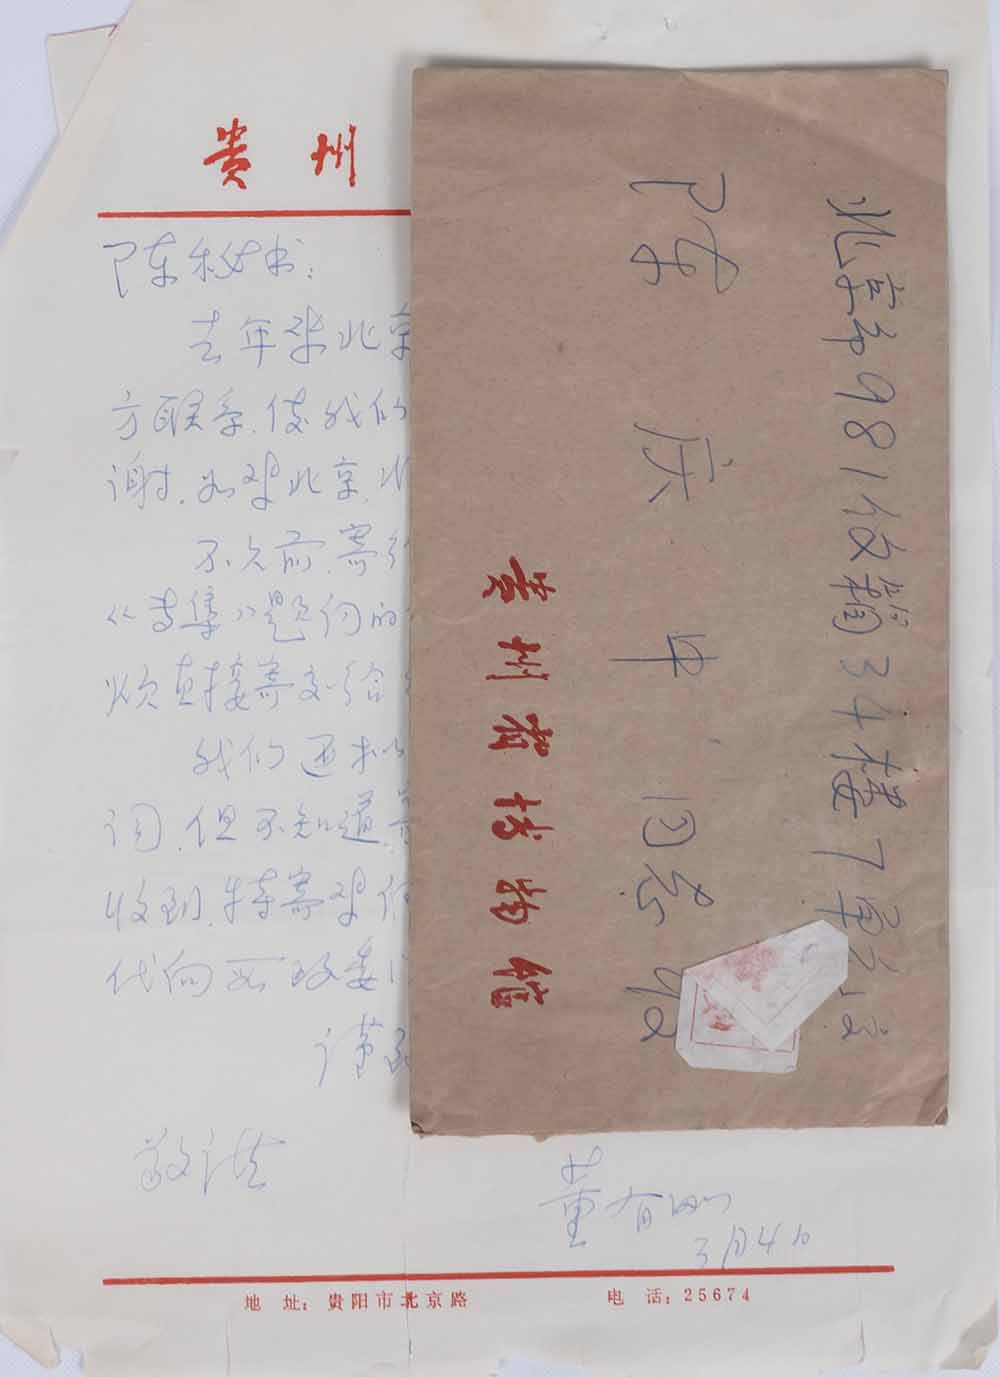 贵州
陈秘书：
去年来北京
方联系，使我们
谢。如来北京，
不久前，寄给
《诗集》题词的
烦直接寄交给
我们还拟
词，但不知道
收到，特寄来
代向
敬请
董有刚
3月4日
地 址：贵阳市北京路
电 话：25674
北京市981信箱34楼7单元
陈庆中同志收
贵州省博物馆